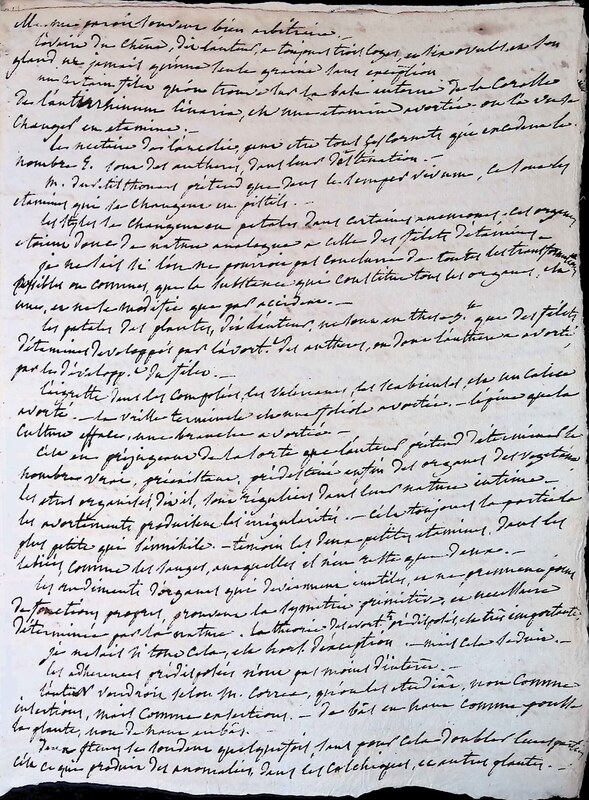 me paroit souvent bien arbitraire.
L'ovaire du chêne, dit l'auteur, a toujours trois loges, et six ovules, et son
gland n'a jamais qu'une seule graine sans exception.
un certain filet qu'on trouve sur la base interne de la Corolle
de l'antirrhinum linaria, est une étamine avortée, on le voit se
changer en etamine.
les nectaires de l'ancolie, peuvent etre tous ces cornets qui excedent le
nombre 5. sont des antheres, dans leur destination.
M. du petit thouars pretend que dans le sempervivum, ce sont les
etamines qui se changent en pistils.
les styles se changent en petales dans certaines anemones, ces organes
etoient donc de nature analogue à celle des filets d'etamines.
je ne sais si l'on ne pourroit pas conclure de toutes les transformations
possibles ou connues, que la substance qui constitue tous les organes, est
une, et ne se modifie que par accident.
les petales des plantes, dit l'auteur, ne sont en these g.le que des filets
d'étamines developpés par l'avort.t des antheres, ou dont l'anthere a avorté
par le développ.t du filet.
l'aigrette dans les Composées, les valerianes, les scabieuses, est un calice
avorté — la vrille terminale est une foliole avortée. — l'épine que la
culture efface, une branche avortée.
Cela en préjugeant de la sorte que l'auteur prétend déterminer le
nombre vrai, préexistant, prédestiné enfin des organes des vegetaux
les etres organisés, dit il, sont réguliers dans leur nature intime. —
les avortements produisent les irrégularités. — c'est toujours la partie la
plus petite qui s'annihile — temoin les deux petites etamines, dans les
labiées comme les sauges, auxquelles il n'en reste que deux. —
les rudiments d'organes qui deviennent inutiles, et ne prennent point
de fonctions propres, prouvent la symétrie primitive, et necessaire
déterminée par la nature. la theorie des avort.ts prédisposés, est très importante
je ne sais si tout cela, est hors d'exception — mais cela séduit. —
les adherences prédisposées n'ont pas moins d'interêt. —
l'auteur voudroit selon M. Correa, qu'on les etudiât, non comme
insertions, mais comme exsertions. — de bas en haut comme pousse
la plante, non de haut en bas.
Deux fleurs se soudent quelquefois, sans pour cela doubler leurs parties,
c'est ce qui produit des anomalies, dans les Colchiques, et autres plantes. —